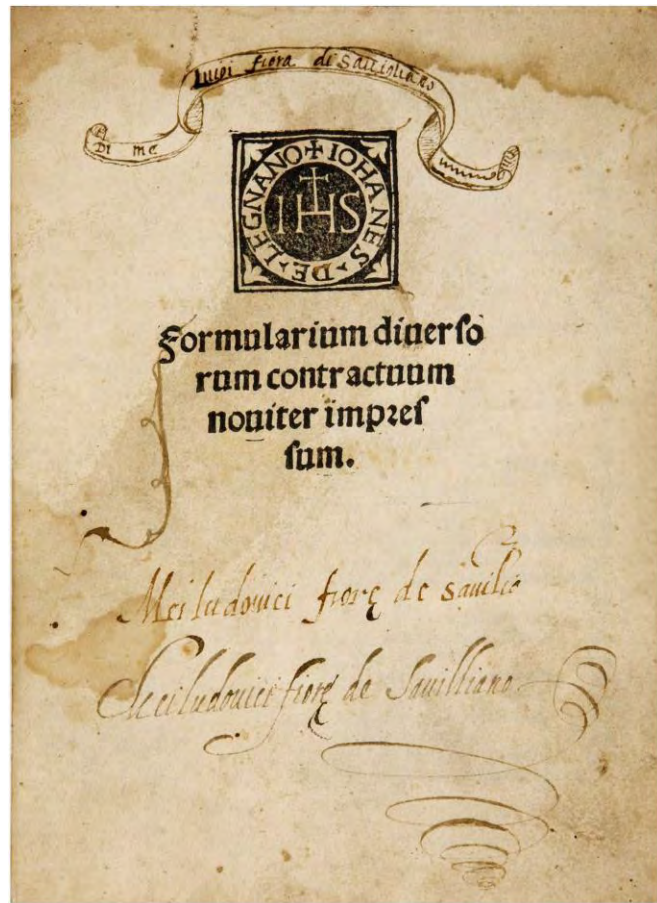 Di me
Luigi fiora di Savigliano
✝ IOHANES · DE · LEGNANO
IHS
Formularium diuerſo
rum contractuum
nouiter impreſ
ſum.
Mei ludouici fiorę de Sauilio
Mei ludouici fiorę de Sauilliano